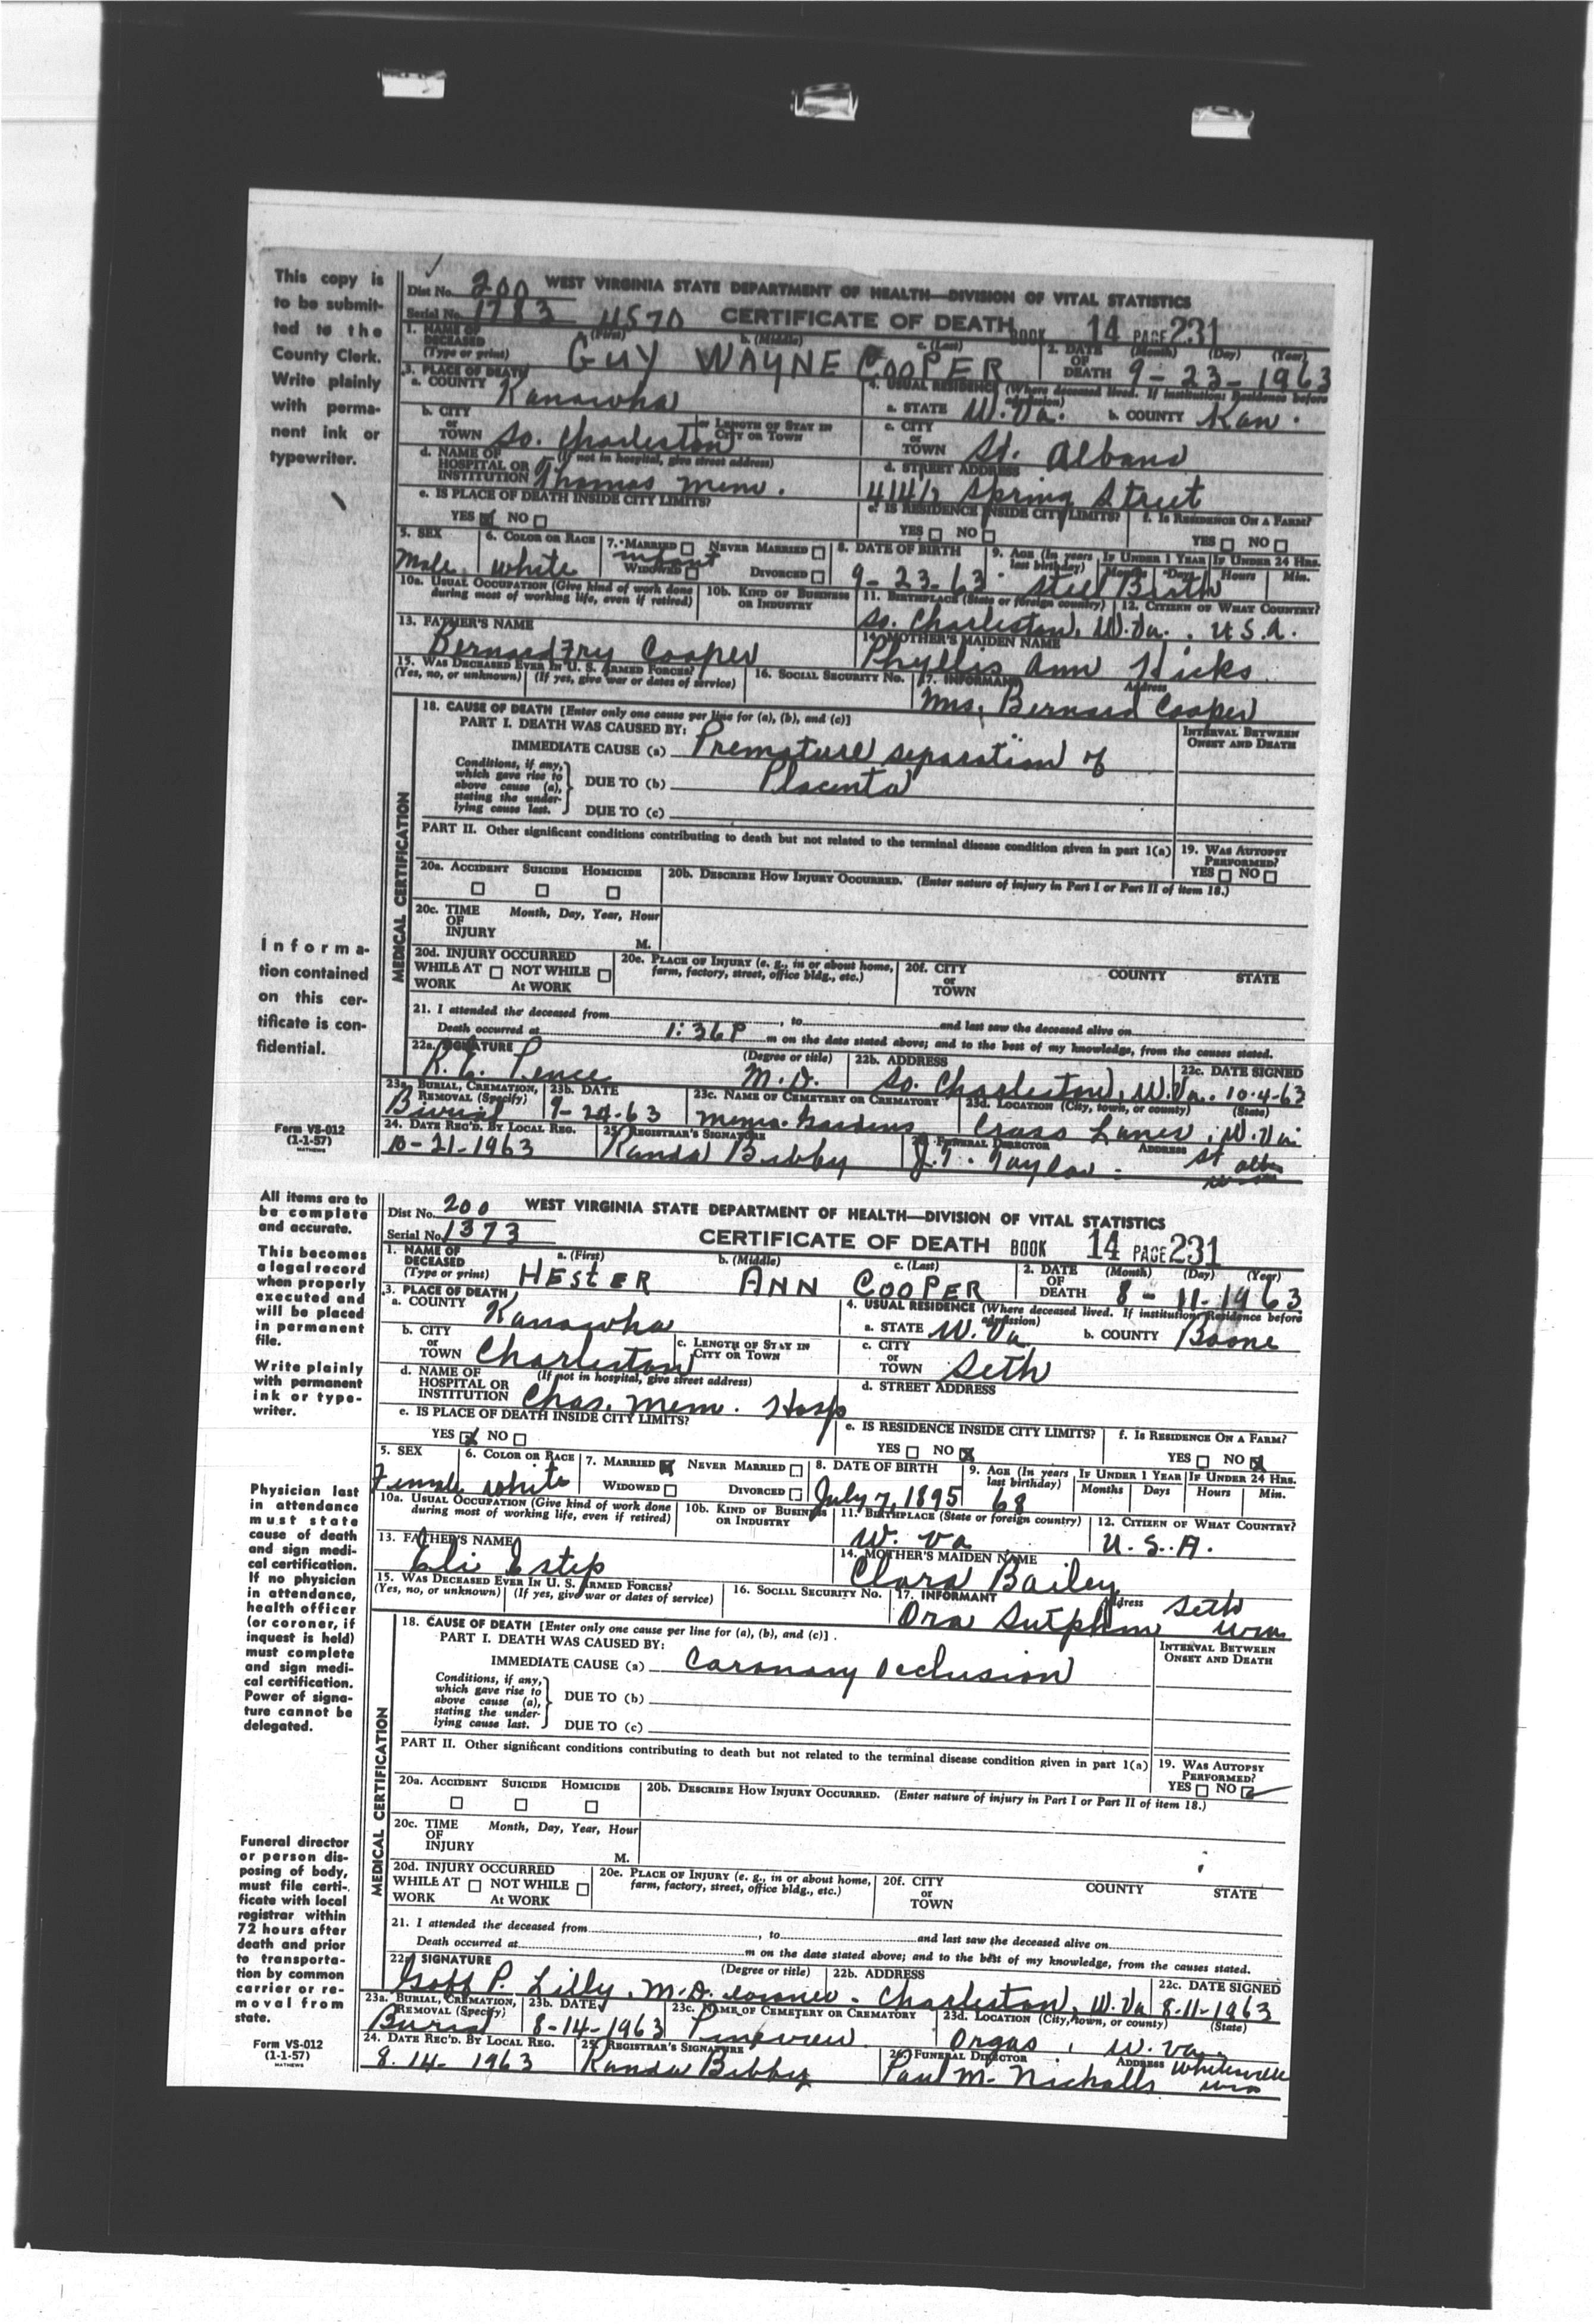 This copy is
to be submit-
ted to the
County Clerk.
Write plainly
with perma-
nent ink or
typewriter.
Informa-
tion contained
on this cer-
tificate is con-
fidential.
Form VS-012
(1-1-57)
MATHEWS
Dist No. 200 WEST VIRGINIA STATE DEPARTMENT OF HEALTH—DIVISION OF VITAL STATISTICS
Serial No. 1783 CERTIFICATE OF DEATH BOOK 14 PAGE 231
1. NAME OF DECEASED (Type or print) (First) b. (Middle) c. (Last) GUY WAYNE COOPER 2. DATE OF DEATH (Month) (Day) (Year) 9-23-1963
3. PLACE OF DEATH a. COUNTY Kanawha 4. USUAL RESIDENCE (Where deceased lived. If institution: Residence before admission) a. STATE W. Va. b. COUNTY Kan.
b. CITY or TOWN So. Charleston c. LENGTH OF STAY IN CITY OR TOWN c. CITY or TOWN St. Albans
d. NAME OF HOSPITAL OR INSTITUTION (If not in hospital, give street address) Thomas Mem. d. STREET ADDRESS 414½ Spring Street
e. IS PLACE OF DEATH INSIDE CITY LIMITS? YES NO e. IS RESIDENCE INSIDE CITY LIMITS? YES NO f. IS RESIDENCE ON A FARM? YES NO
5. SEX Male 6. COLOR OR RACE white 7. MARRIED NEVER MARRIED WIDOWED DIVORCED infant 8. DATE OF BIRTH 9-23-63 9. AGE (In years last birthday) IF UNDER 1 YEAR Months Days IF UNDER 24 HRS. Hours Min. Still Birth
10a. USUAL OCCUPATION (Give kind of work done during most of working life, even if retired) 10b. KIND OF BUSINESS OR INDUSTRY 11. BIRTHPLACE (State or foreign country) So. Charleston, W. Va. 12. CITIZEN OF WHAT COUNTRY? U.S.A.
13. FATHER'S NAME Bernard Fry Cooper 14. MOTHER'S MAIDEN NAME Phyllis Ann Hicks
15. WAS DECEASED EVER IN U. S. ARMED FORCES? (Yes, no, or unknown) (If yes, give war or dates of service) 16. SOCIAL SECURITY NO. 17. INFORMANT Address Mrs. Bernard Cooper
MEDICAL CERTIFICATION
18. CAUSE OF DEATH [Enter only one cause per line for (a), (b), and (c)]
PART I. DEATH WAS CAUSED BY: INTERVAL BETWEEN ONSET AND DEATH
IMMEDIATE CAUSE (a) Premature separation of
Conditions, if any, which gave rise to above cause (a), stating the under-lying cause last. DUE TO (b) Placenta
DUE TO (c)
PART II. Other significant conditions contributing to death but not related to the terminal disease condition given in part 1(a) 19. WAS AUTOPSY PERFORMED? YES NO
20a. ACCIDENT SUICIDE HOMICIDE 20b. DESCRIBE HOW INJURY OCCURRED. (Enter nature of injury in Part I or Part II of item 18.)
20c. TIME OF INJURY Month, Day, Year, Hour M.
20d. INJURY OCCURRED WHILE AT WORK NOT WHILE AT WORK 20e. PLACE OF INJURY (e. g., in or about home, farm, factory, street, office bldg., etc.) 20f. CITY or TOWN COUNTY STATE
21. I attended the deceased from , to and last saw the deceased alive on
Death occurred at 1:36 P m on the date stated above; and to the best of my knowledge, from the causes stated.
22a. SIGNATURE R. L. Pence (Degree or title) M.D. 22b. ADDRESS So. Charleston, W. Va. 22c. DATE SIGNED 10-4-63
23a. BURIAL, CREMATION, REMOVAL (Specify) Burial 23b. DATE 9-24-63 23c. NAME OF CEMETERY OR CREMATORY Memo. Gardens 23d. LOCATION (City, town, or county) (State) Cross Lanes, W. Va.
24. DATE REC'D. BY LOCAL REG. 10-21-1963 25. REGISTRAR'S SIGNATURE Randa Bibby 26. FUNERAL DIRECTOR J. T. Taylor ADDRESS St Alb
All items are to
be complete
and accurate.
This becomes
a legal record
when properly
executed and
will be placed
in permanent
file.
Write plainly
with permanent
ink or type-
writer.
Physician last
in attendance
must state
cause of death
and sign medi-
cal certification.
If no physician
in attendance,
health officer
(or coroner, if
inquest is held)
must complete
and sign medi-
cal certification.
Power of signa-
ture cannot be
delegated.
Funeral director
or person dis-
posing of body,
must file certi-
ficate with local
registrar within
72 hours after
death and prior
to transporta-
tion by common
carrier or re-
moval from
state.
Form VS-012
(1-1-57)
MATHEWS
Dist No. 200 WEST VIRGINIA STATE DEPARTMENT OF HEALTH—DIVISION OF VITAL STATISTICS
Serial No. 1373 CERTIFICATE OF DEATH BOOK 14 PAGE 231
1. NAME OF DECEASED (Type or print) a. (First) b. (Middle) c. (Last) HESTER ANN COOPER 2. DATE OF DEATH (Month) (Day) (Year) 8-11-1963
3. PLACE OF DEATH a. COUNTY Kanawha 4. USUAL RESIDENCE (Where deceased lived. If institution: Residence before admission) a. STATE W. Va b. COUNTY Boone
b. CITY or TOWN Charleston c. LENGTH OF STAY IN CITY OR TOWN c. CITY or TOWN Seth
d. NAME OF HOSPITAL OR INSTITUTION (If not in hospital, give street address) Chas. Mem. Hosp d. STREET ADDRESS
e. IS PLACE OF DEATH INSIDE CITY LIMITS? YES NO e. IS RESIDENCE INSIDE CITY LIMITS? YES NO f. IS RESIDENCE ON A FARM? YES NO
5. SEX Female 6. COLOR OR RACE white 7. MARRIED NEVER MARRIED WIDOWED DIVORCED 8. DATE OF BIRTH July 7, 1895 9. AGE (In years last birthday) 68 IF UNDER 1 YEAR Months Days IF UNDER 24 HRS. Hours Min.
10a. USUAL OCCUPATION (Give kind of work done during most of working life, even if retired) 10b. KIND OF BUSINESS OR INDUSTRY 11. BIRTHPLACE (State or foreign country) W. Va 12. CITIZEN OF WHAT COUNTRY? U.S.A.
13. FATHER'S NAME Eli Estep 14. MOTHER'S MAIDEN NAME Clara Bailey
15. WAS DECEASED EVER IN U. S. ARMED FORCES? (Yes, no, or unknown) (If yes, give war or dates of service) 16. SOCIAL SECURITY NO. 17. INFORMANT Ora Sutphin Address Seth
MEDICAL CERTIFICATION
18. CAUSE OF DEATH [Enter only one cause per line for (a), (b), and (c)].
PART I. DEATH WAS CAUSED BY: INTERVAL BETWEEN ONSET AND DEATH
IMMEDIATE CAUSE (a) Coronary Occlusion
Conditions, if any, which gave rise to above cause (a), stating the under-lying cause last. DUE TO (b)
DUE TO (c)
PART II. Other significant conditions contributing to death but not related to the terminal disease condition given in part 1(a) 19. WAS AUTOPSY PERFORMED? YES NO
20a. ACCIDENT SUICIDE HOMICIDE 20b. DESCRIBE HOW INJURY OCCURRED. (Enter nature of injury in Part I or Part II of item 18.)
20c. TIME OF INJURY Month, Day, Year, Hour M.
20d. INJURY OCCURRED WHILE AT WORK NOT WHILE AT WORK 20e. PLACE OF INJURY (e. g., in or about home, farm, factory, street, office bldg., etc.) 20f. CITY or TOWN COUNTY STATE
21. I attended the deceased from , to and last saw the deceased alive on
Death occurred at m on the date stated above; and to the best of my knowledge, from the causes stated.
22a SIGNATURE Goff P. Lilly, M.D. coroner (Degree or title) 22b. ADDRESS Charleston, W. Va 22c. DATE SIGNED 8-11-1963
23a. BURIAL, CREMATION, REMOVAL (Specify) Burial 23b. DATE 8-14-1963 23c. NAME OF CEMETERY OR CREMATORY Pineview 23d. LOCATION (City, town, or county) (State) Orgas, W. Va.
24. DATE REC'D. BY LOCAL REG. 8-14-1963 25. REGISTRAR'S SIGNATURE Randa Bibby 26. FUNERAL DIRECTOR Paul M. Nicholls ADDRESS Whitesville